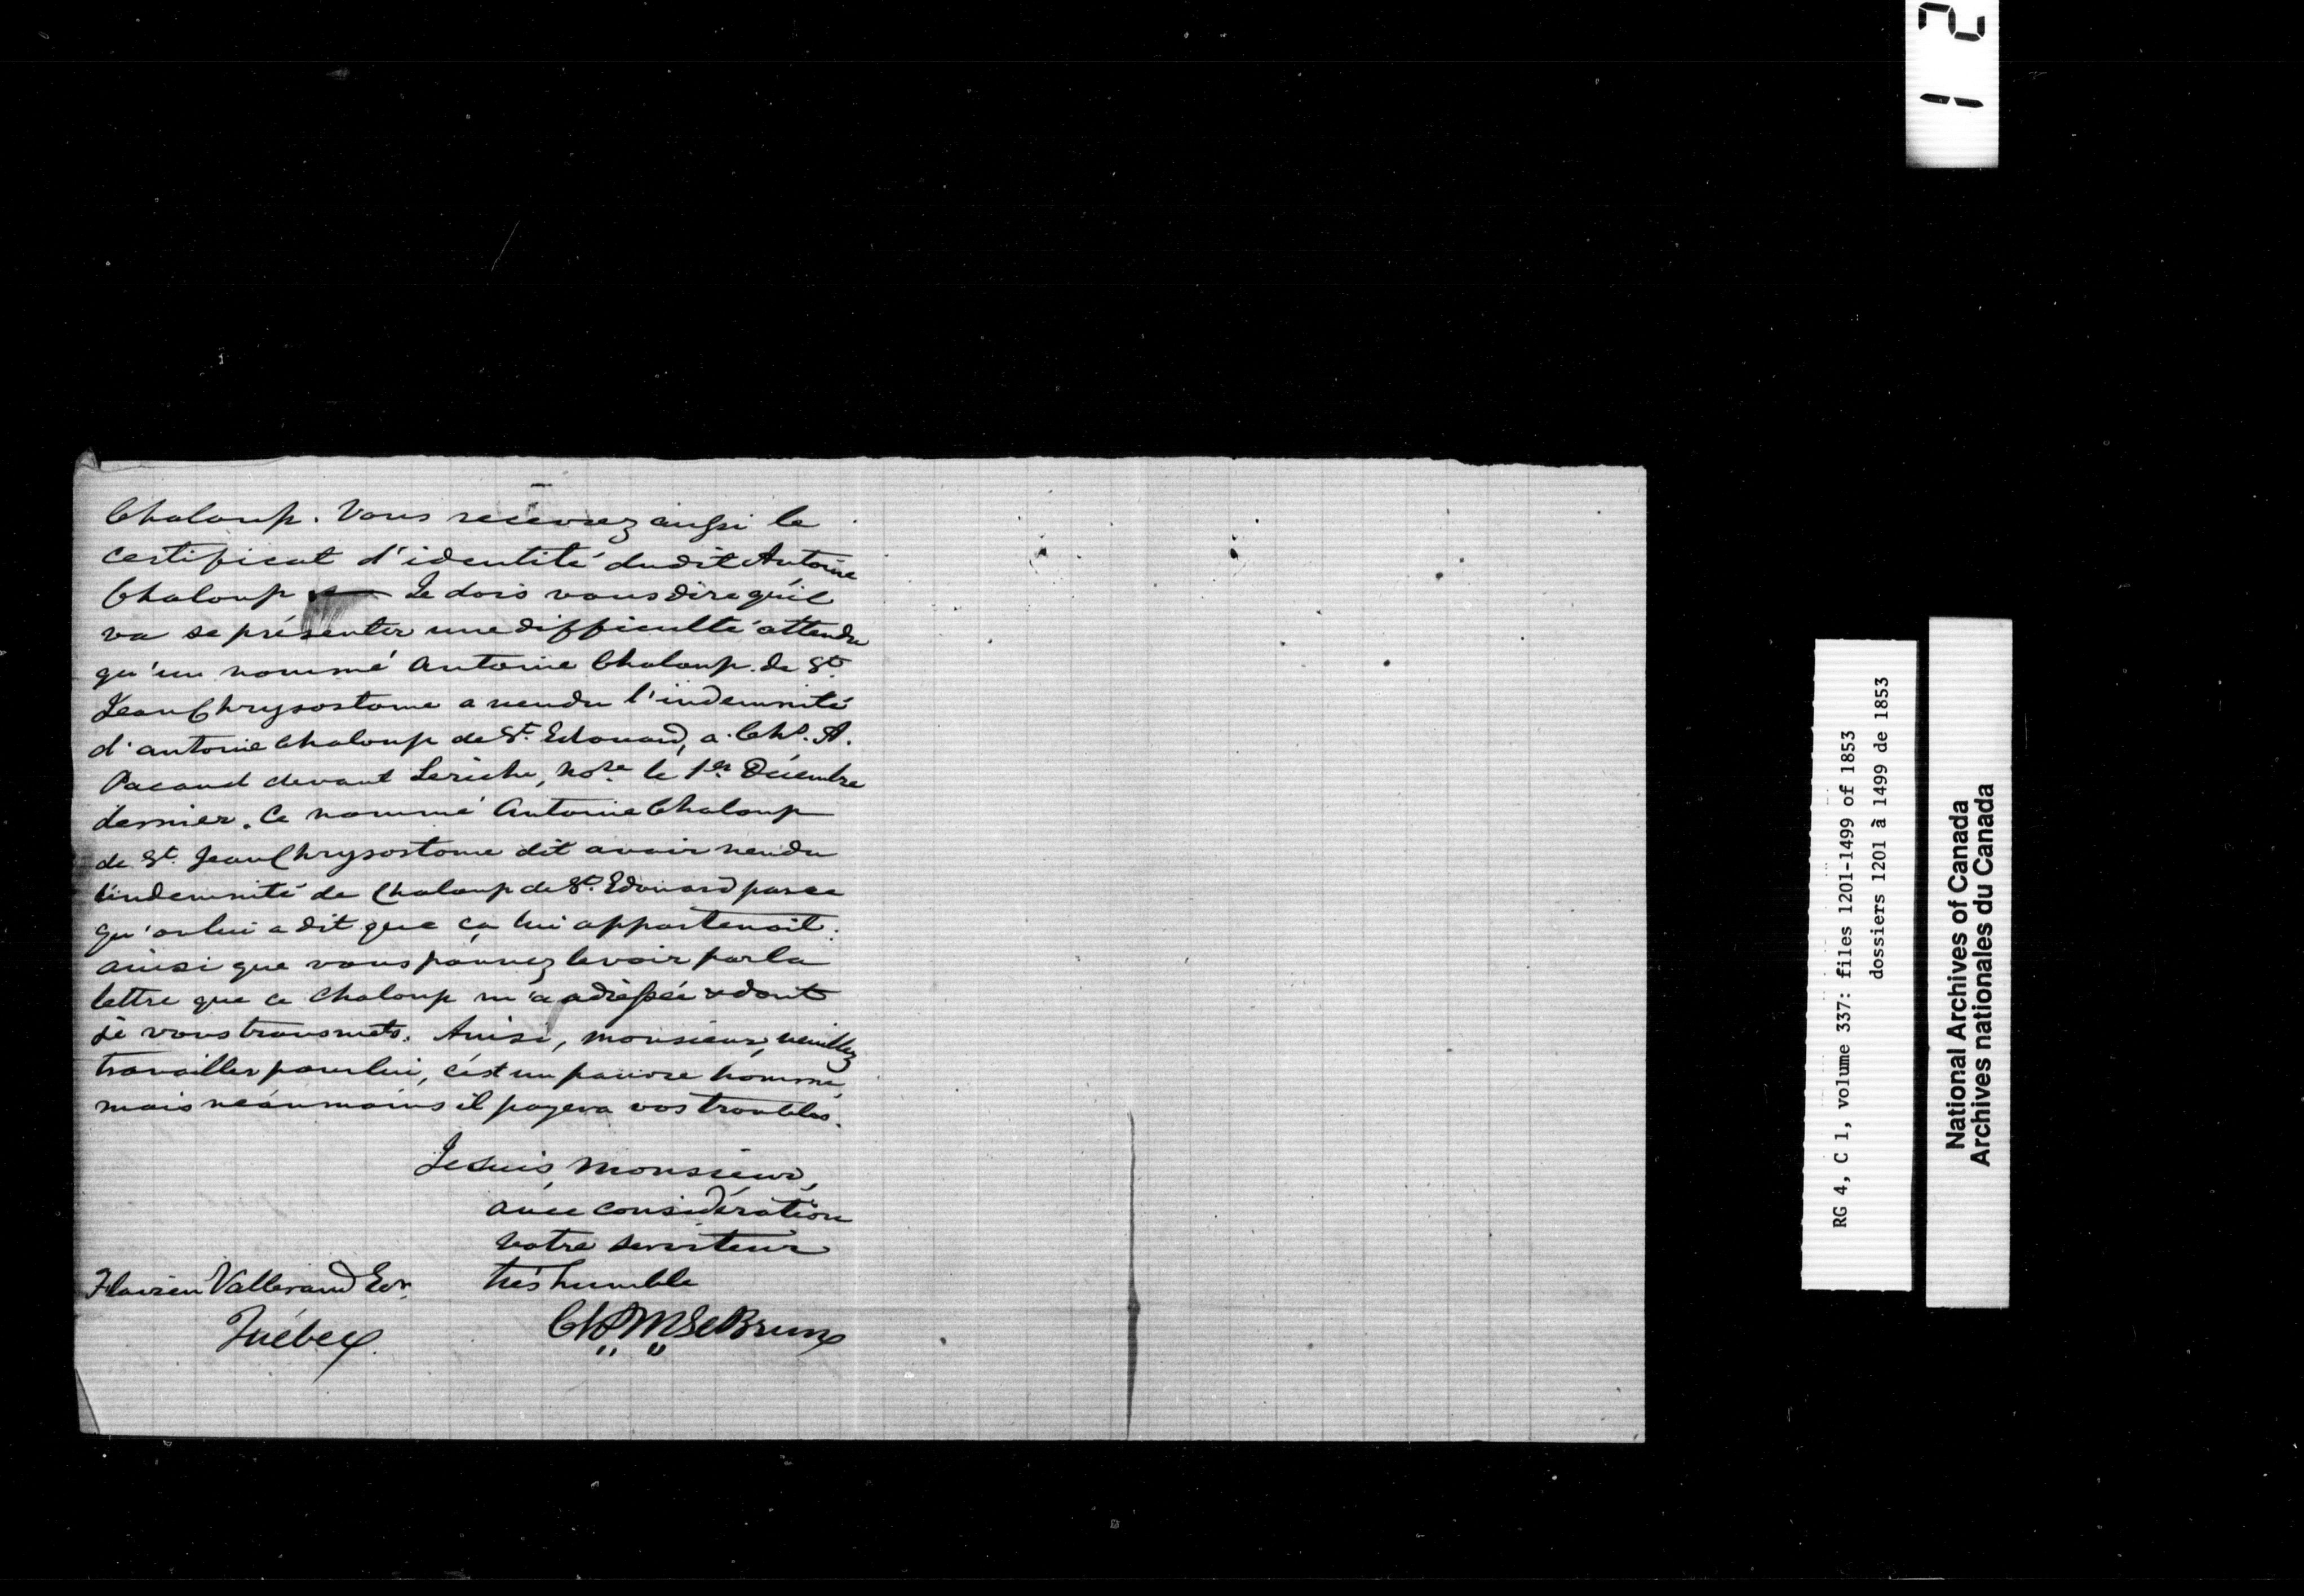 Chaloup. Vous recevrez aussi le
certificat d'identité dudit Antoine
Chaloup Je dois vous dire qu'il
va se présenter une difficulté attendu
qu'un nommé Antoine Chaloup de St.
Jean Chrysostome a vendu l'indemnité
d'antoine Chaloup de St. Edouard, a Chs. A.
Pacaud devant Leriche, Nore le 1er Décembre
dernier. Ce nommé Antoine Chaloup
de St. Jean Chrysostome dit avoir vendu
l'indemnité de Chaloup de St. Edouard parce
qu'on lui a dit que ça lui appartenait.
ainsi que vous pouvez le voir par la
lettre que ce Chaloup m'a adressée & dont
je vous transmets. Ainsi, monsieur, veuillez
travailler pour lui, c'est un pauvre homme,
mais néanmoins il payera vos troubles.
Je suis, monsieur,
avec considération
votre serviteur
très humble
Flavien Vallerand Ecr.
Québec.
Chs. M LeBrun
12
RG 4, C 1, volume 337: files 1201-1499 of 1853
dossiers 1201 à 1499 de 1853
National Archives of Canada
Archives nationales du Canada